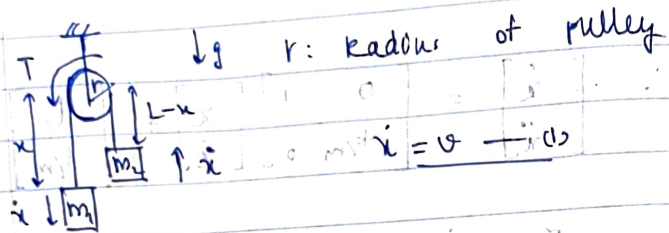 T ↓g r: Radius of pulley
r
x L-x
m₂ ↑ ẋ ẋ = v — (1)
ẋ ↓ m₁